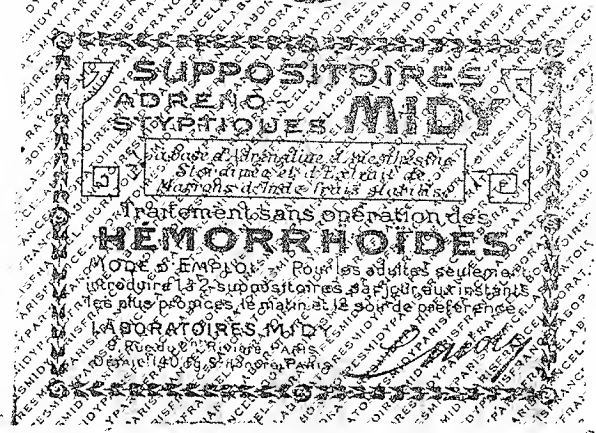 SUPPOSITOIRES
ADRÉNO-
STYPTIQUES MIDY
à base d'Adrénaline d'Anesthésine
Stovaïne et d'Extrait de
Marrons d'Inde frais stabilisé
Traitement sans opération des
HÉMORRHOÏDES
MODE D'EMPLOI Pour les adultes seulement
introduire 1 à 2 suppositoires par jour aux instants
les plus propices, le matin et le soir de préférence
LABORATOIRES MIDY
Rue du Rivière PARIS
Dépôt 140 PARIS
L midy